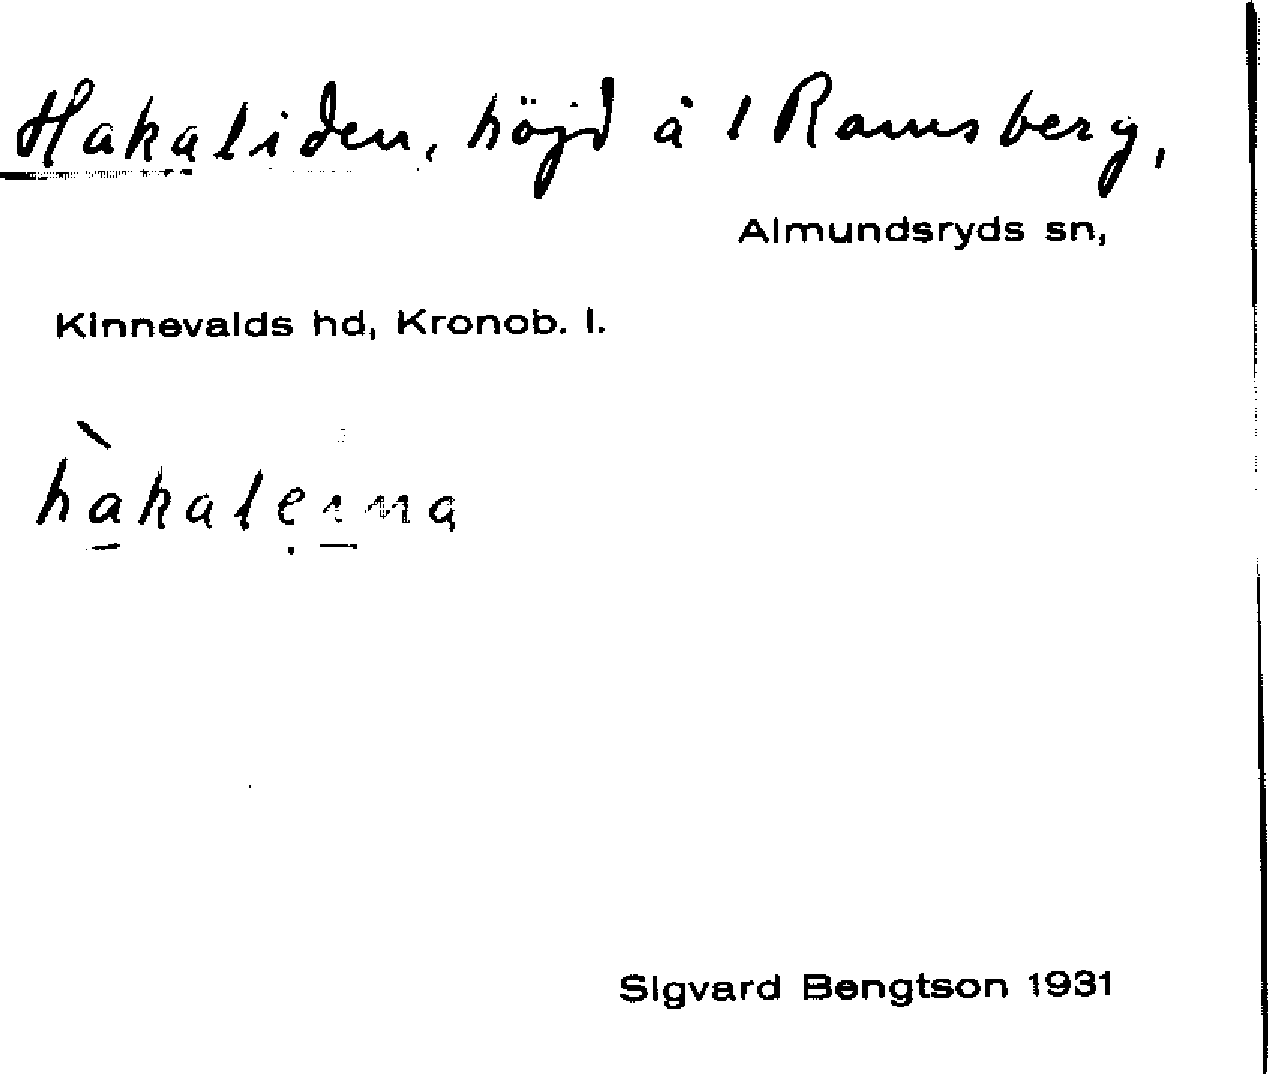 Hakaliden, höjd å 1 Ramsberg,
Almundsryds sn,
Kinnevalds hd, Kronob. l.
hàkaleina
Sigvard Bengtson 1931